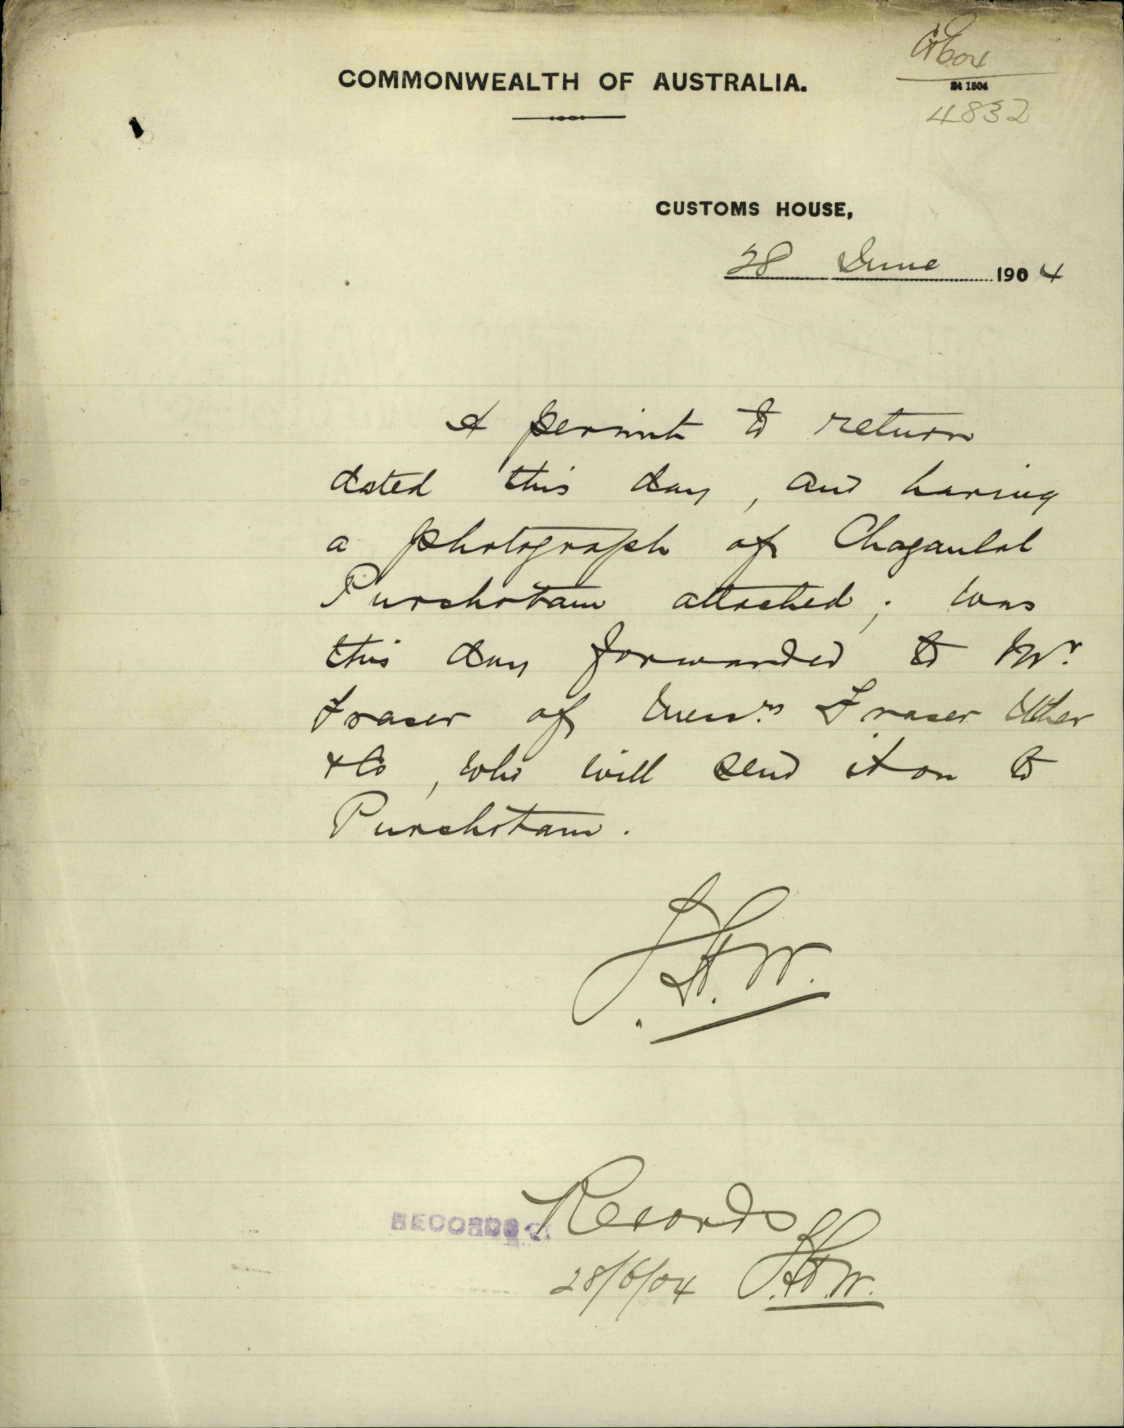 COMMONWEALTH OF AUSTRALIA.
4832
CUSTOMS HOUSE,
28 June 1904
A permit to return
dated this day, and having
a photograph of Chaganlal
Purshotam attached; was
this day forwarded to Mr.
Fraser of Messrs. Fraser Uther
& Co, who will send it on to
Purshotam.
J.H.W.
RECORDS
Records
28/6/04 J.H.W.